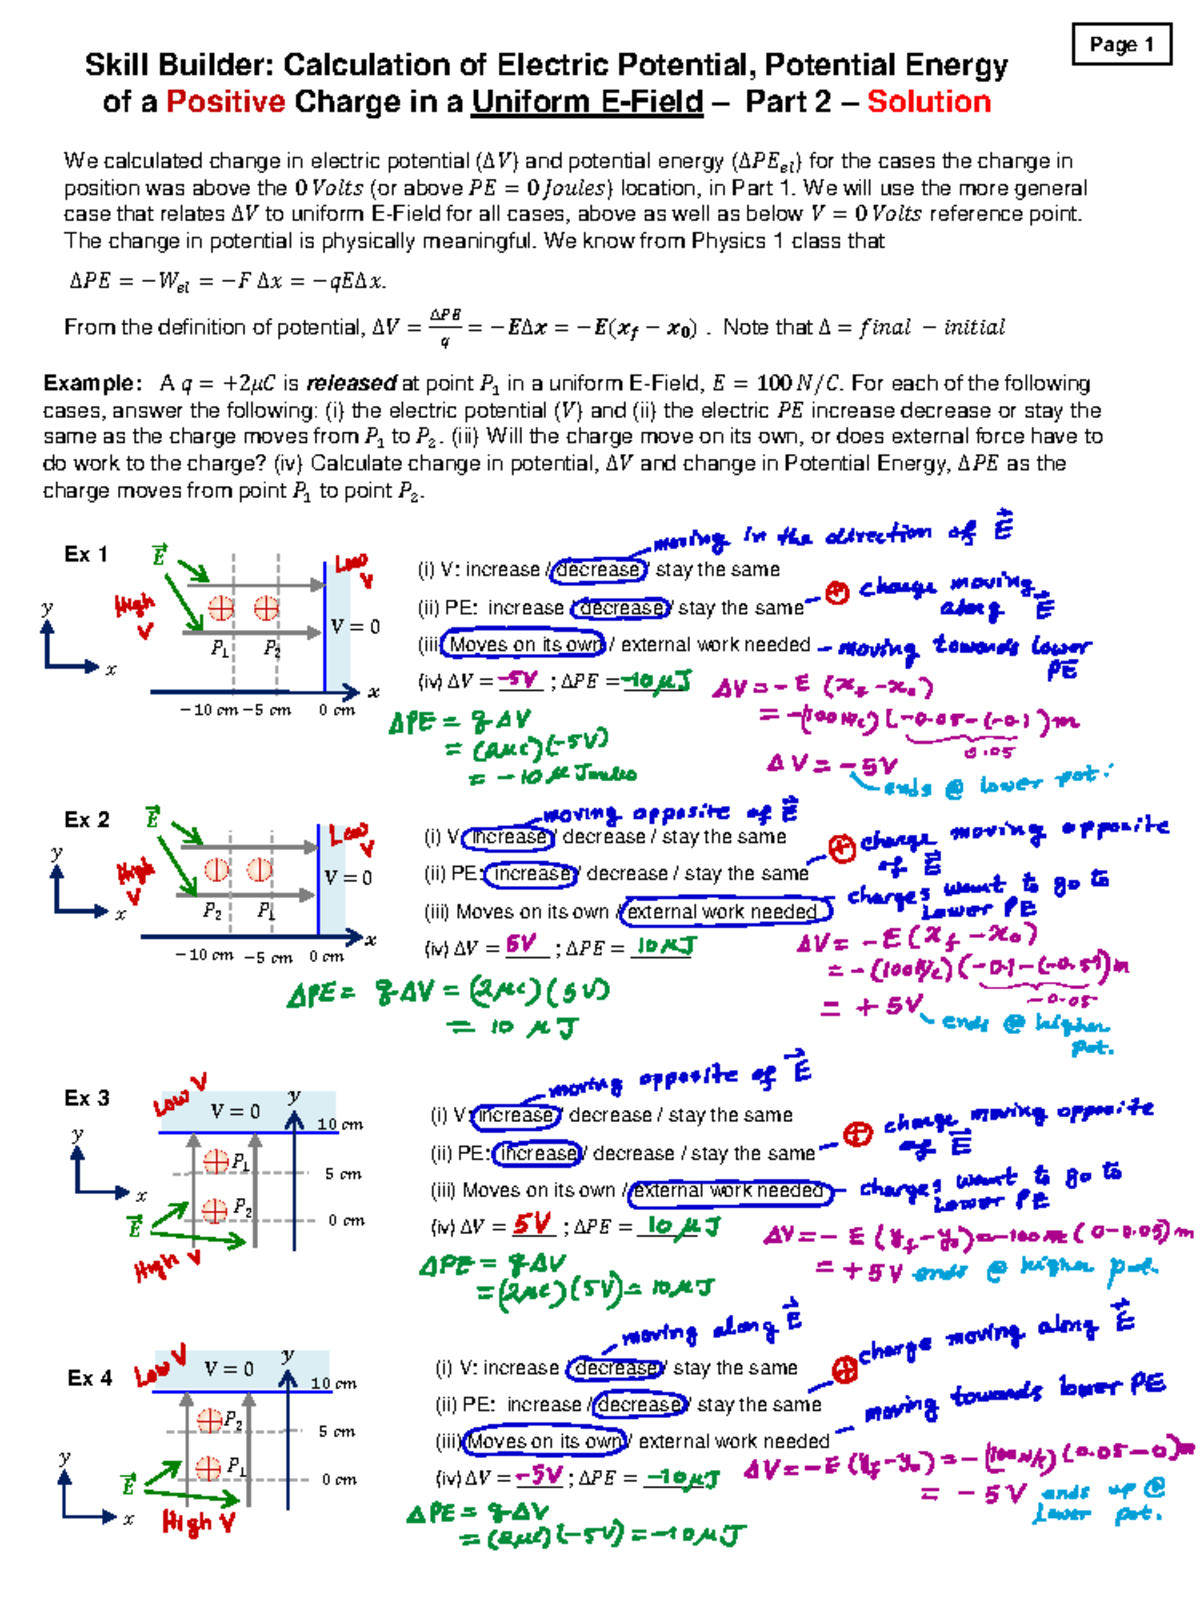 Page 1
Skill Builder: Calculation of Electric Potential, Potential Energy
of a Positive Charge in a Uniform E-Field – Part 2 – Solution
We calculated change in electric potential (ΔV) and potential energy (ΔPE_el) for the cases the change in
position was above the 0 Volts (or above PE = 0 Joules) location, in Part 1. We will use the more general
case that relates ΔV to uniform E-Field for all cases, above as well as below V = 0 Volts reference point.
The change in potential is physically meaningful. We know from Physics 1 class that
ΔPE = −W_el = −F Δx = −qEΔx.
From the definition of potential, ΔV = ΔPE/q = −EΔx = −E(x_f − x_0) . Note that Δ = final − initial
Example: A q = +2μC is released at point P₁ in a uniform E-Field, E = 100 N/C. For each of the following
cases, answer the following: (i) the electric potential (V) and (ii) the electric PE increase decrease or stay the
same as the charge moves from P₁ to P₂. (iii) Will the charge move on its own, or does external force have to
do work to the charge? (iv) Calculate change in potential, ΔV and change in Potential Energy, ΔPE as the
charge moves from point P₁ to point P₂.
moving in the direction of E
Ex 1
E
Low V
High V
y
x
P₁
P₂
V = 0
x
−10 cm −5 cm 0 cm
(i) V: increase / decrease / stay the same
(ii) PE: increase / decrease / stay the same – ⊕ charge moving along E
(iii) Moves on its own / external work needed – moving towards lower PE
(iv) ΔV = -5V ; ΔPE = -10 μJ
ΔV = -E (x_f - x_0)
= -(100 N/C) [-0.05 - (-0.1)] m
0.05
ΔV = -5V
ends @ lower pot.
ΔPE = q ΔV
= (2μC)(-5V)
= -10 μ Joules
Ex 2
E
Low V
High V
y
x
P₂
P₁
V = 0
x
−10 cm −5 cm 0 cm
moving opposite of E
(i) V: increase / decrease / stay the same
⊕ charge moving opposite of E
(ii) PE: increase / decrease / stay the same
charges want to go to Lower PE
(iii) Moves on its own / external work needed
(iv) ΔV = 5V ; ΔPE = 10 μJ
ΔV = -E (x_f - x_0)
= -(100 N/C) (-0.1-(-0.5)) m
-0.05
= +5V
ends @ higher pot.
ΔPE = q ΔV = (2μC)(5V)
= 10 μJ
Ex 3
Low V
V = 0
y
10 cm
y
x
P₁
5 cm
P₂
0 cm
E
High V
moving opposite of E
(i) V: increase / decrease / stay the same
⊕ charge moving opposite of E
(ii) PE: increase / decrease / stay the same
(iii) Moves on its own / external work needed – charges want to go to Lower PE
(iv) ΔV = 5V ; ΔPE = 10 μJ
ΔV = -E (y_f - y_0) = -100 N/C (0-0.05) m
= +5V ends @ higher pot.
ΔPE = qΔV
= (2μC)(5V) = 10 μJ
Ex 4
Low V
V = 0
y
10 cm
P₂
5 cm
y
x
P₁
0 cm
E
High V
moving along E
(i) V: increase / decrease / stay the same
⊕ charge moving along E
(ii) PE: increase / decrease / stay the same
(iii) Moves on its own / external work needed – moving towards lower PE
(iv) ΔV = -5V ; ΔPE = -10 μJ
ΔV = -E (y_f - y_0) = -(100 N/C)(0.05-0) m
= -5V
ends up @ lower pot.
ΔPE = qΔV
= (2μC)(-5V) = -10 μJ